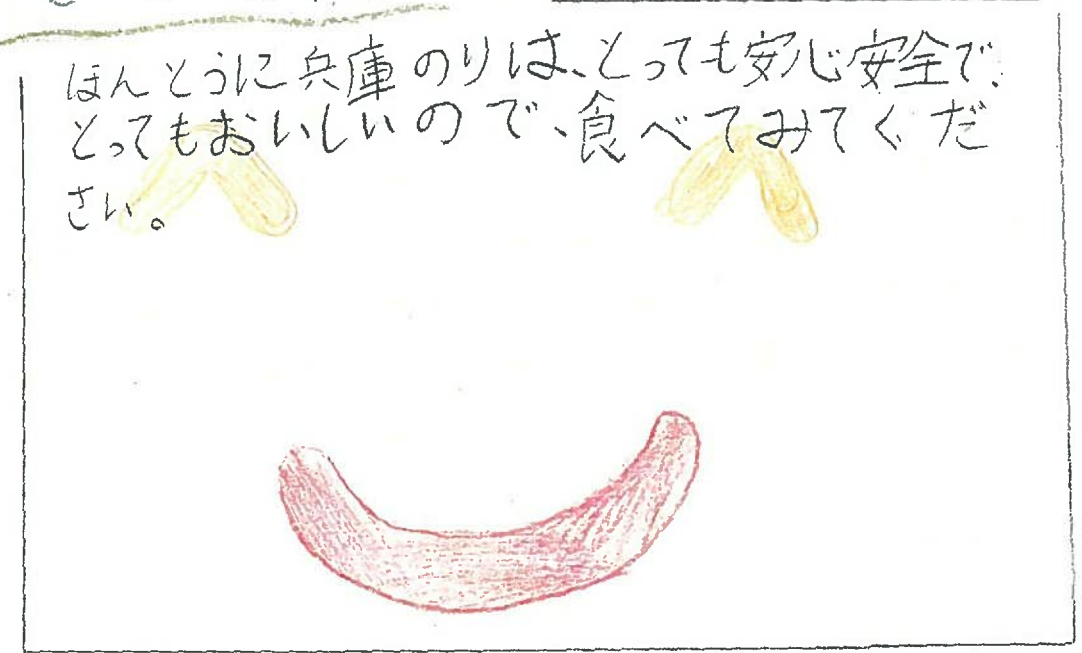 ほんとうに兵庫のりは、とっても安心安全で、
とってもおいしいので、食べてみてくだ
さい。